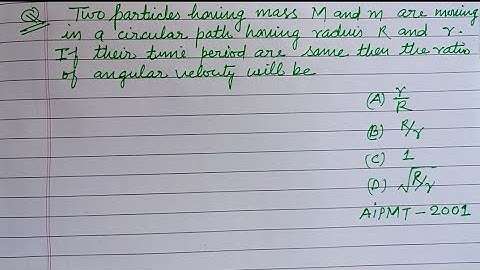 Q Two particles having mass M and m are moving
in a circular path having radius R and r.
If their time period are same then the ratio
of angular velocity will be
(A) r/R
(B) R/r
(C) 1
(D) √R/r
AiPMT - 2001